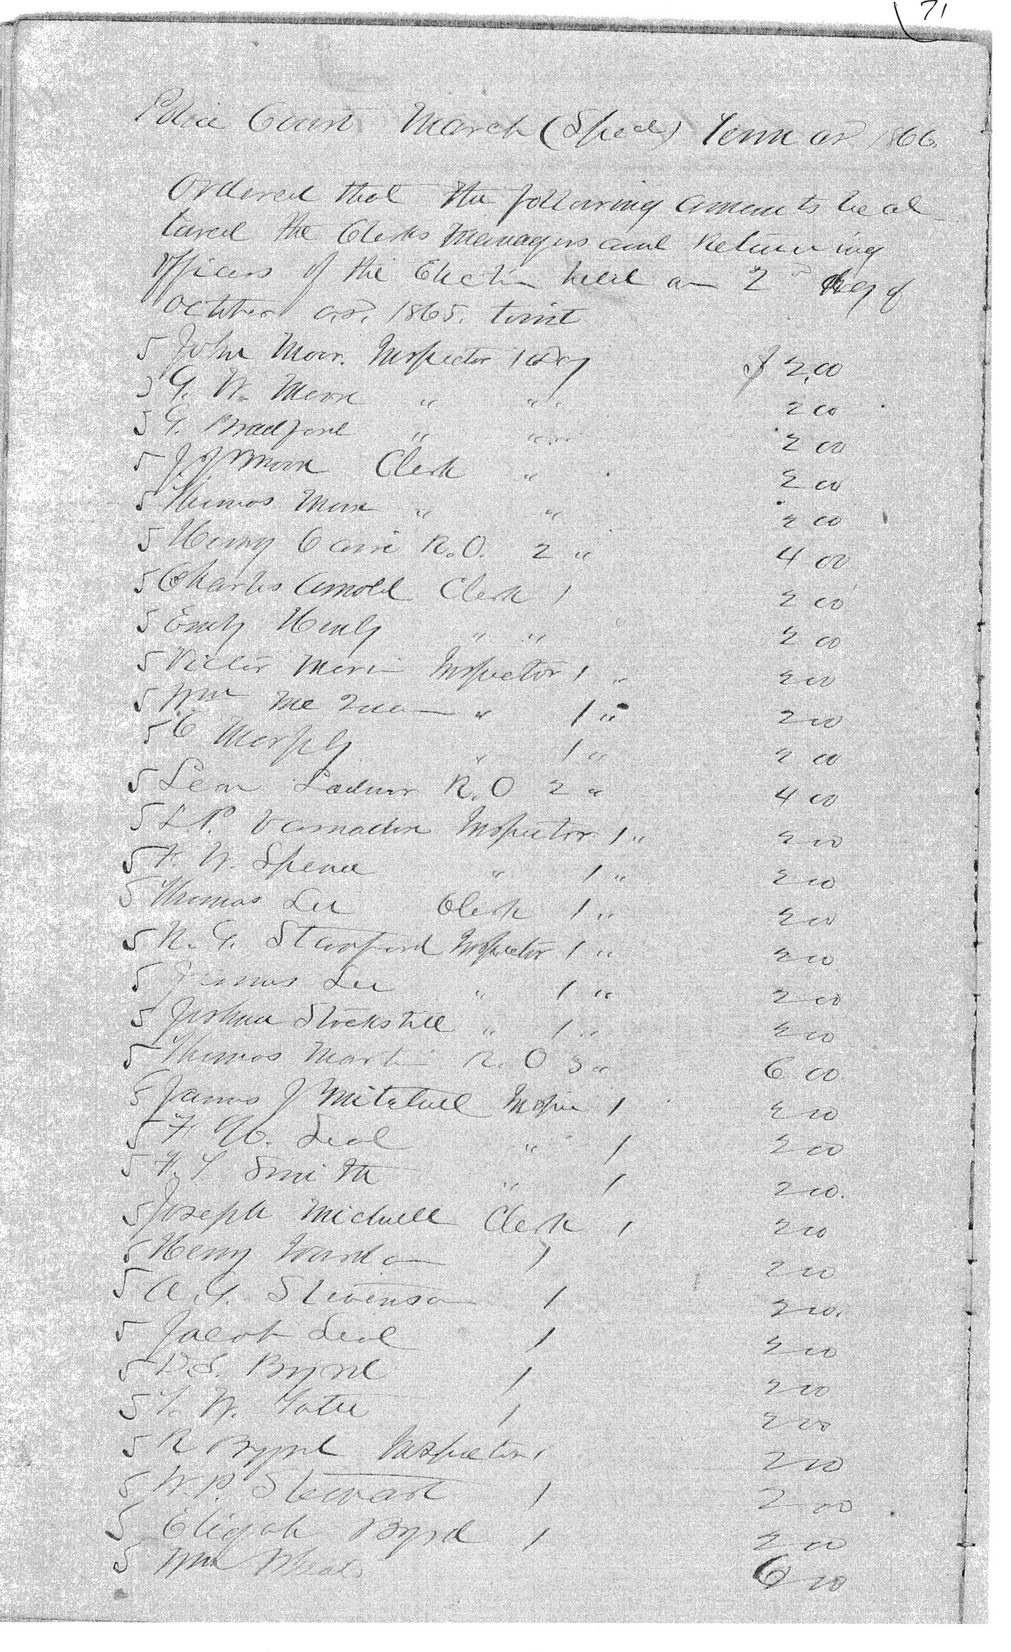 71
Police Court March (Special) Term AD 1866.
Ordered that the following amounts be al
lowed the Clerks Managers and Returning
Officers of the Election held on 2nd day of
October A.D. 1865. towit
5 John Moor. Inspector 1 day $ 2.00
5 G. W. Moore " " " 2 00
5 G. Bradford " " " 2 00
5 J. J. Moore Clerk " 2 00
5 Thomas Moore " " 2 00
5 Henry R.O. 2 " 4 00
5 Charles Arnold Clerk 1 2 00
5 " " " 2 00
5 Victor Morin Inspector 1 " 2 00
5 Wm Mc " 1 " 2 00
5 C Murphy " 1 " 2 00
5 Leon Ladner R.O 2 " 4 00
5 L.P. Varnadore Inspector 1 " 2 00
5 F. W. Spence " 1 " 2 00
5 Thomas Lee Clerk 1 " 2 00
5 N. G. Inspector 1 " 2 00
5 James Lee " 1 " 2 00
5 Joshua Stockstill " 1 " 2 00
5 Thomas Martin R.O 3 " 6 00
5 James J Mitchell Inspe 1 2 00
5 F. Seal " 1 2 00
5 Smith " 1 2 00.
5 Joseph Mitchell Clerk 1 2 00
5 Henry 1 2 00
5 A. G. Stevenson 1 2 00.
5 Jacob Seal 1 2 00
5 D.S. Byrd 1 2 00
5 W. Tate 1 2 00
5 R Byrd Inspector 1 2 00
5 W. P. Stewart 1 2 00
5 Elijah Byrd 1 2 00
5 Wm Wheat 6 00